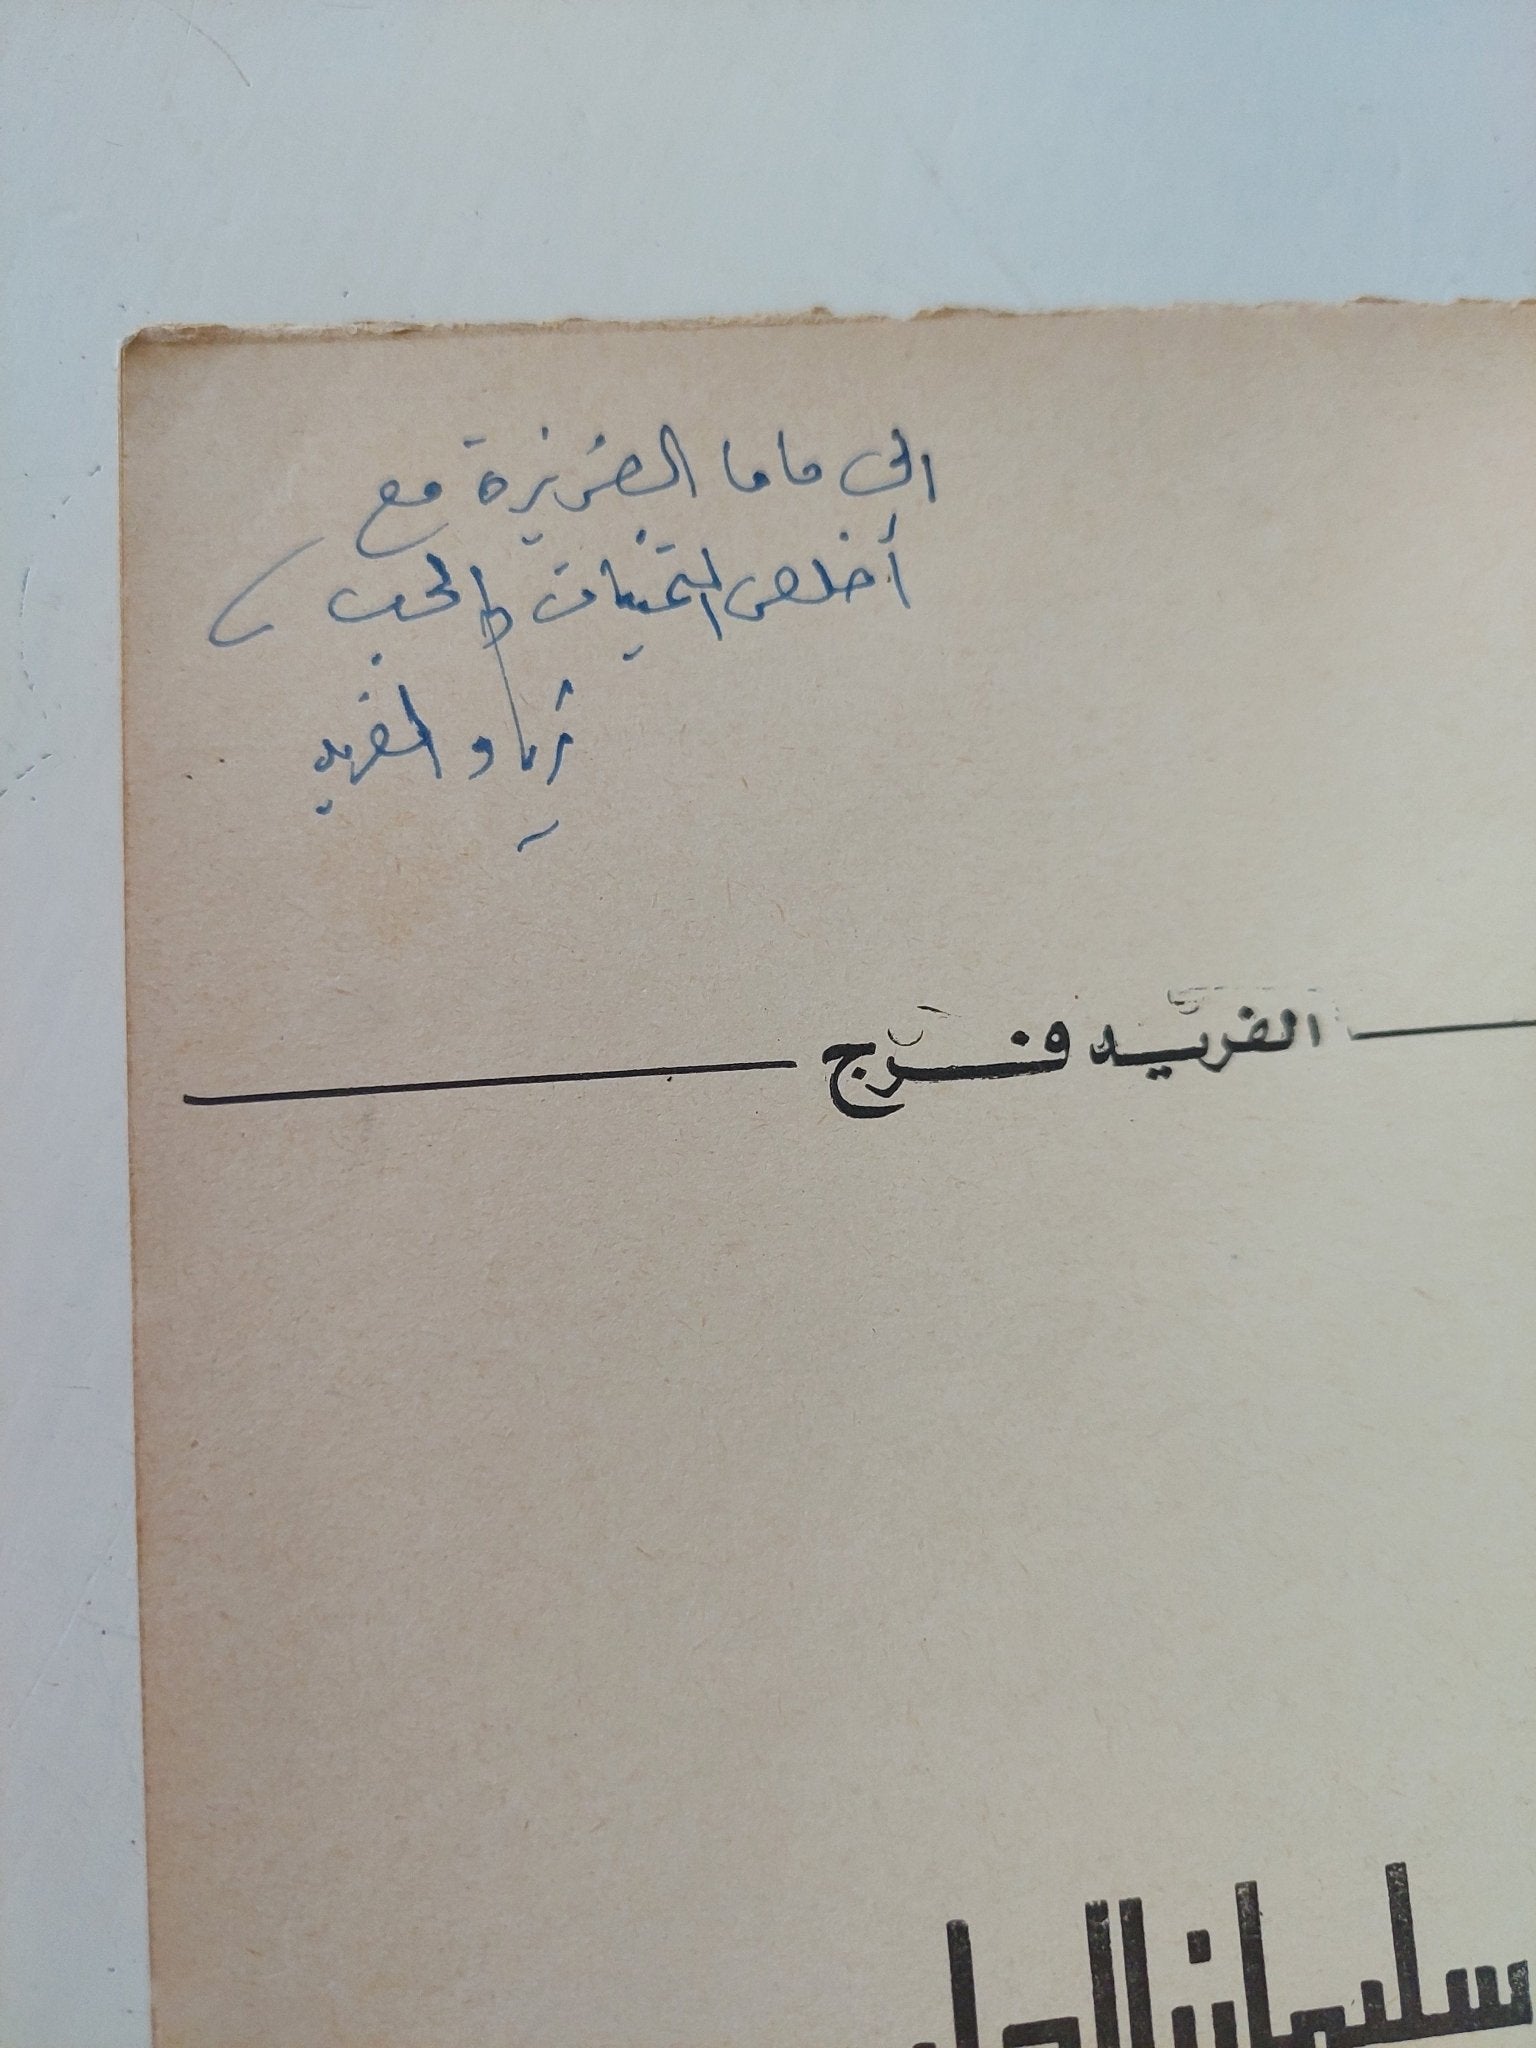 الى ماما العزيزة مع
أخلص التمنيات والحب
زياد الفريد
الفريد فرج
سليمان الحلبي